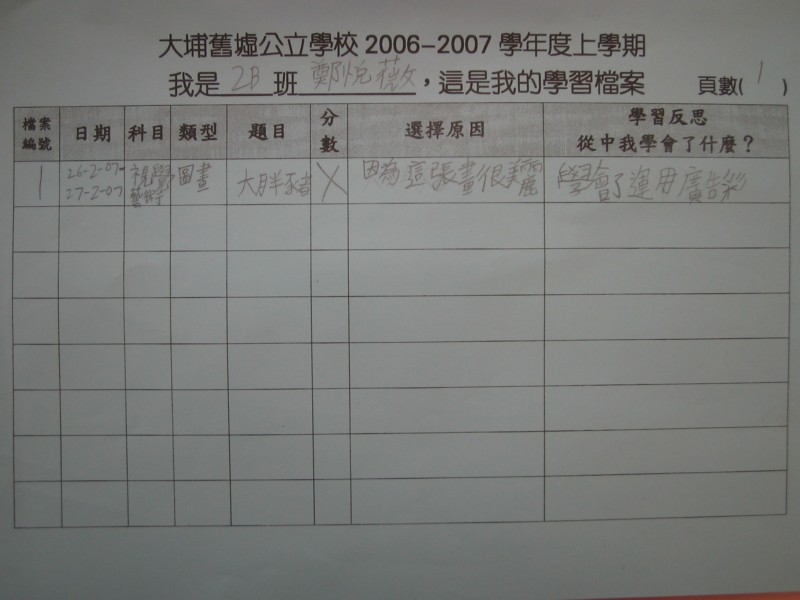 大埔舊墟公立學校 2006-2007 學年度上學期
我是 2B 班 鄭悅薇 ,這是我的學習檔案 頁數( 1 )
檔案編號 日期 科目 類型 題目 分數 選擇原因 學習反思 從中我學會了什麼?
1 26-2-07- 27-2-07 視覺藝術 圖畫 大胖豬 X 因為這張畫很美麗 學會了運用廣告彩